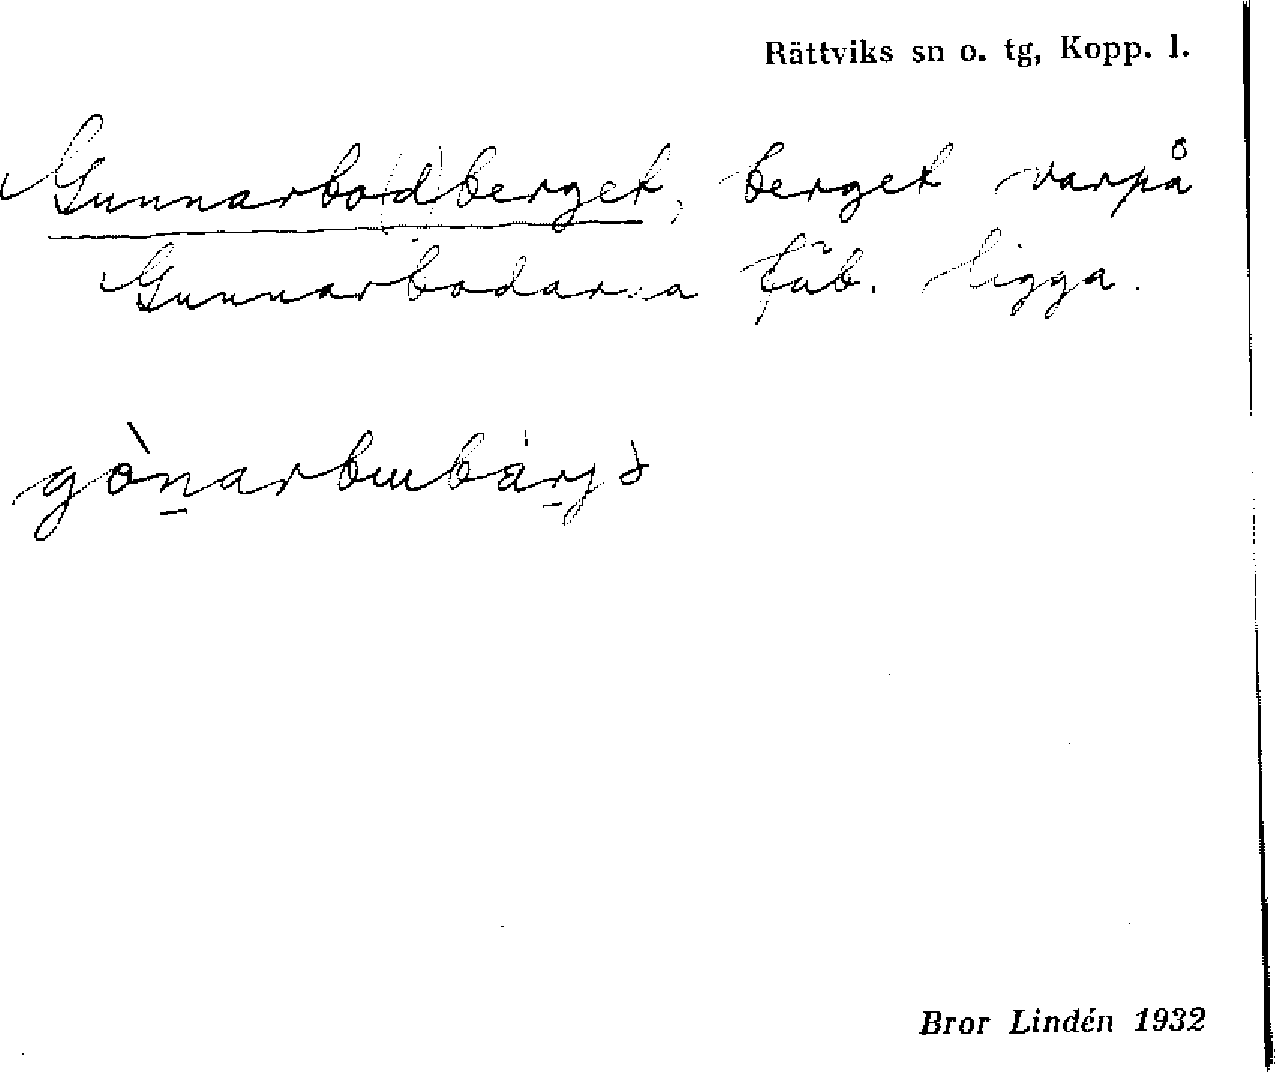 Rättviks sn o. tg, Kopp. l.
Gunnarbo(d)berget, berget varpå
Gunnarbodarna fäb. ligga.
gònarbɯbárjə
Bror Lindén 1932